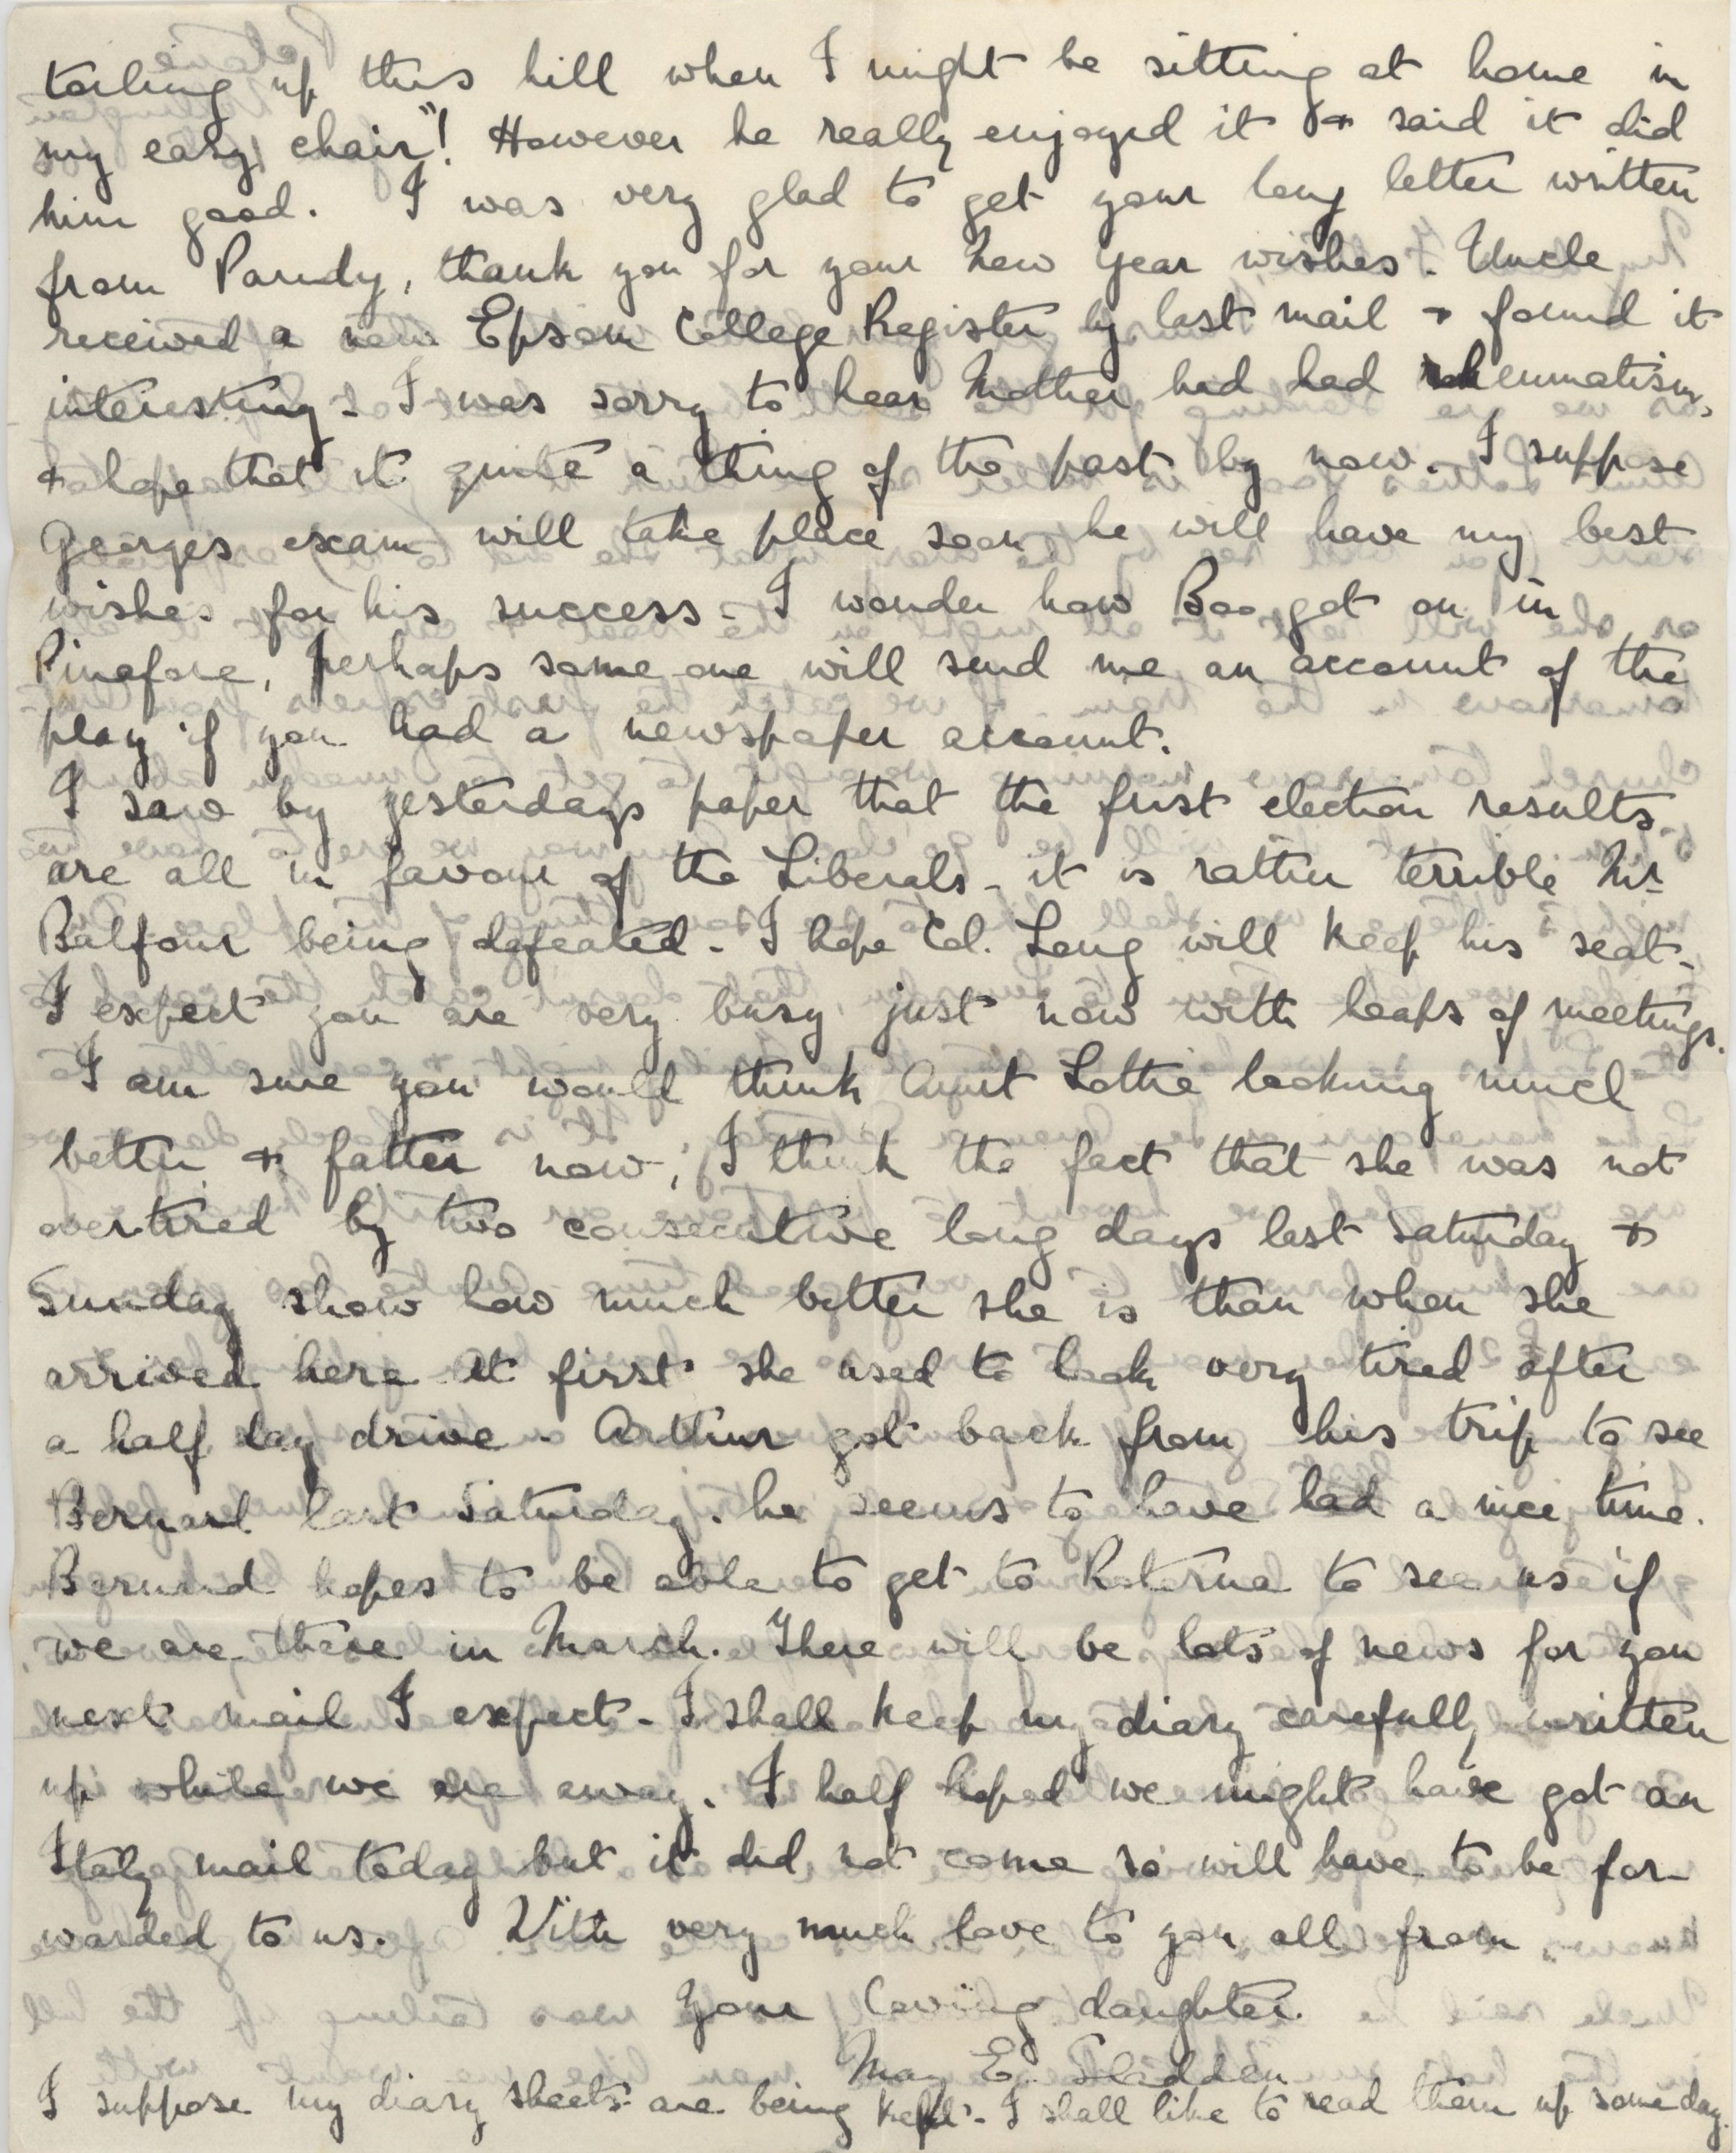 toiling up this hill when I might be sitting at home in
my easy chair"! However he really enjoyed it & said it did
him good. I was very glad to get your long letter written
from Pandy, thank you for your New Year wishes. Uncle
received a new Epsom College Register by last mail & found it
interesting - I was sorry to hear Mother had had rheumatism,
& hope that it quite a thing of the past by now. I suppose
Georges exam will take place soon, he will have my best
wishes for his success - I wonder how Boo got on in
Pinafore, perhaps some one will send me an account of the
play if you had a newspaper account.
I saw by yesterdays paper that the first election results
are all in favour of the Liberals - it is rather terrible Mr
Balfour being defeated - I hope Col. Long will keep his seat -
I expect you are very busy just now with heaps of meetings.
I am sure you would think Aunt Lottie looking much
better & fatter now, I think the fact that she was not
overtired by two consecutive long days last Saturday &
Sunday show how much better she is than when she
arrived here. At first she used to look very tired after
a half day drive - Arthur got back from his trip to see
Bernard last Saturday. he seems to have had a nice time.
Bernard hopes to be able to get to Rotorua to see us if
we are there in March. There will be lots of news for you
next mail I expect - I shall keep my diary carefully written
up while we are away. I half hoped we might have got an
Italy mail today but it did not come so will have to be for-
warded to us. With very much love to you all from
Your loving daughter.
May E. Sladden
I suppose my diary sheets are being kept - I shall like to read them up some day.